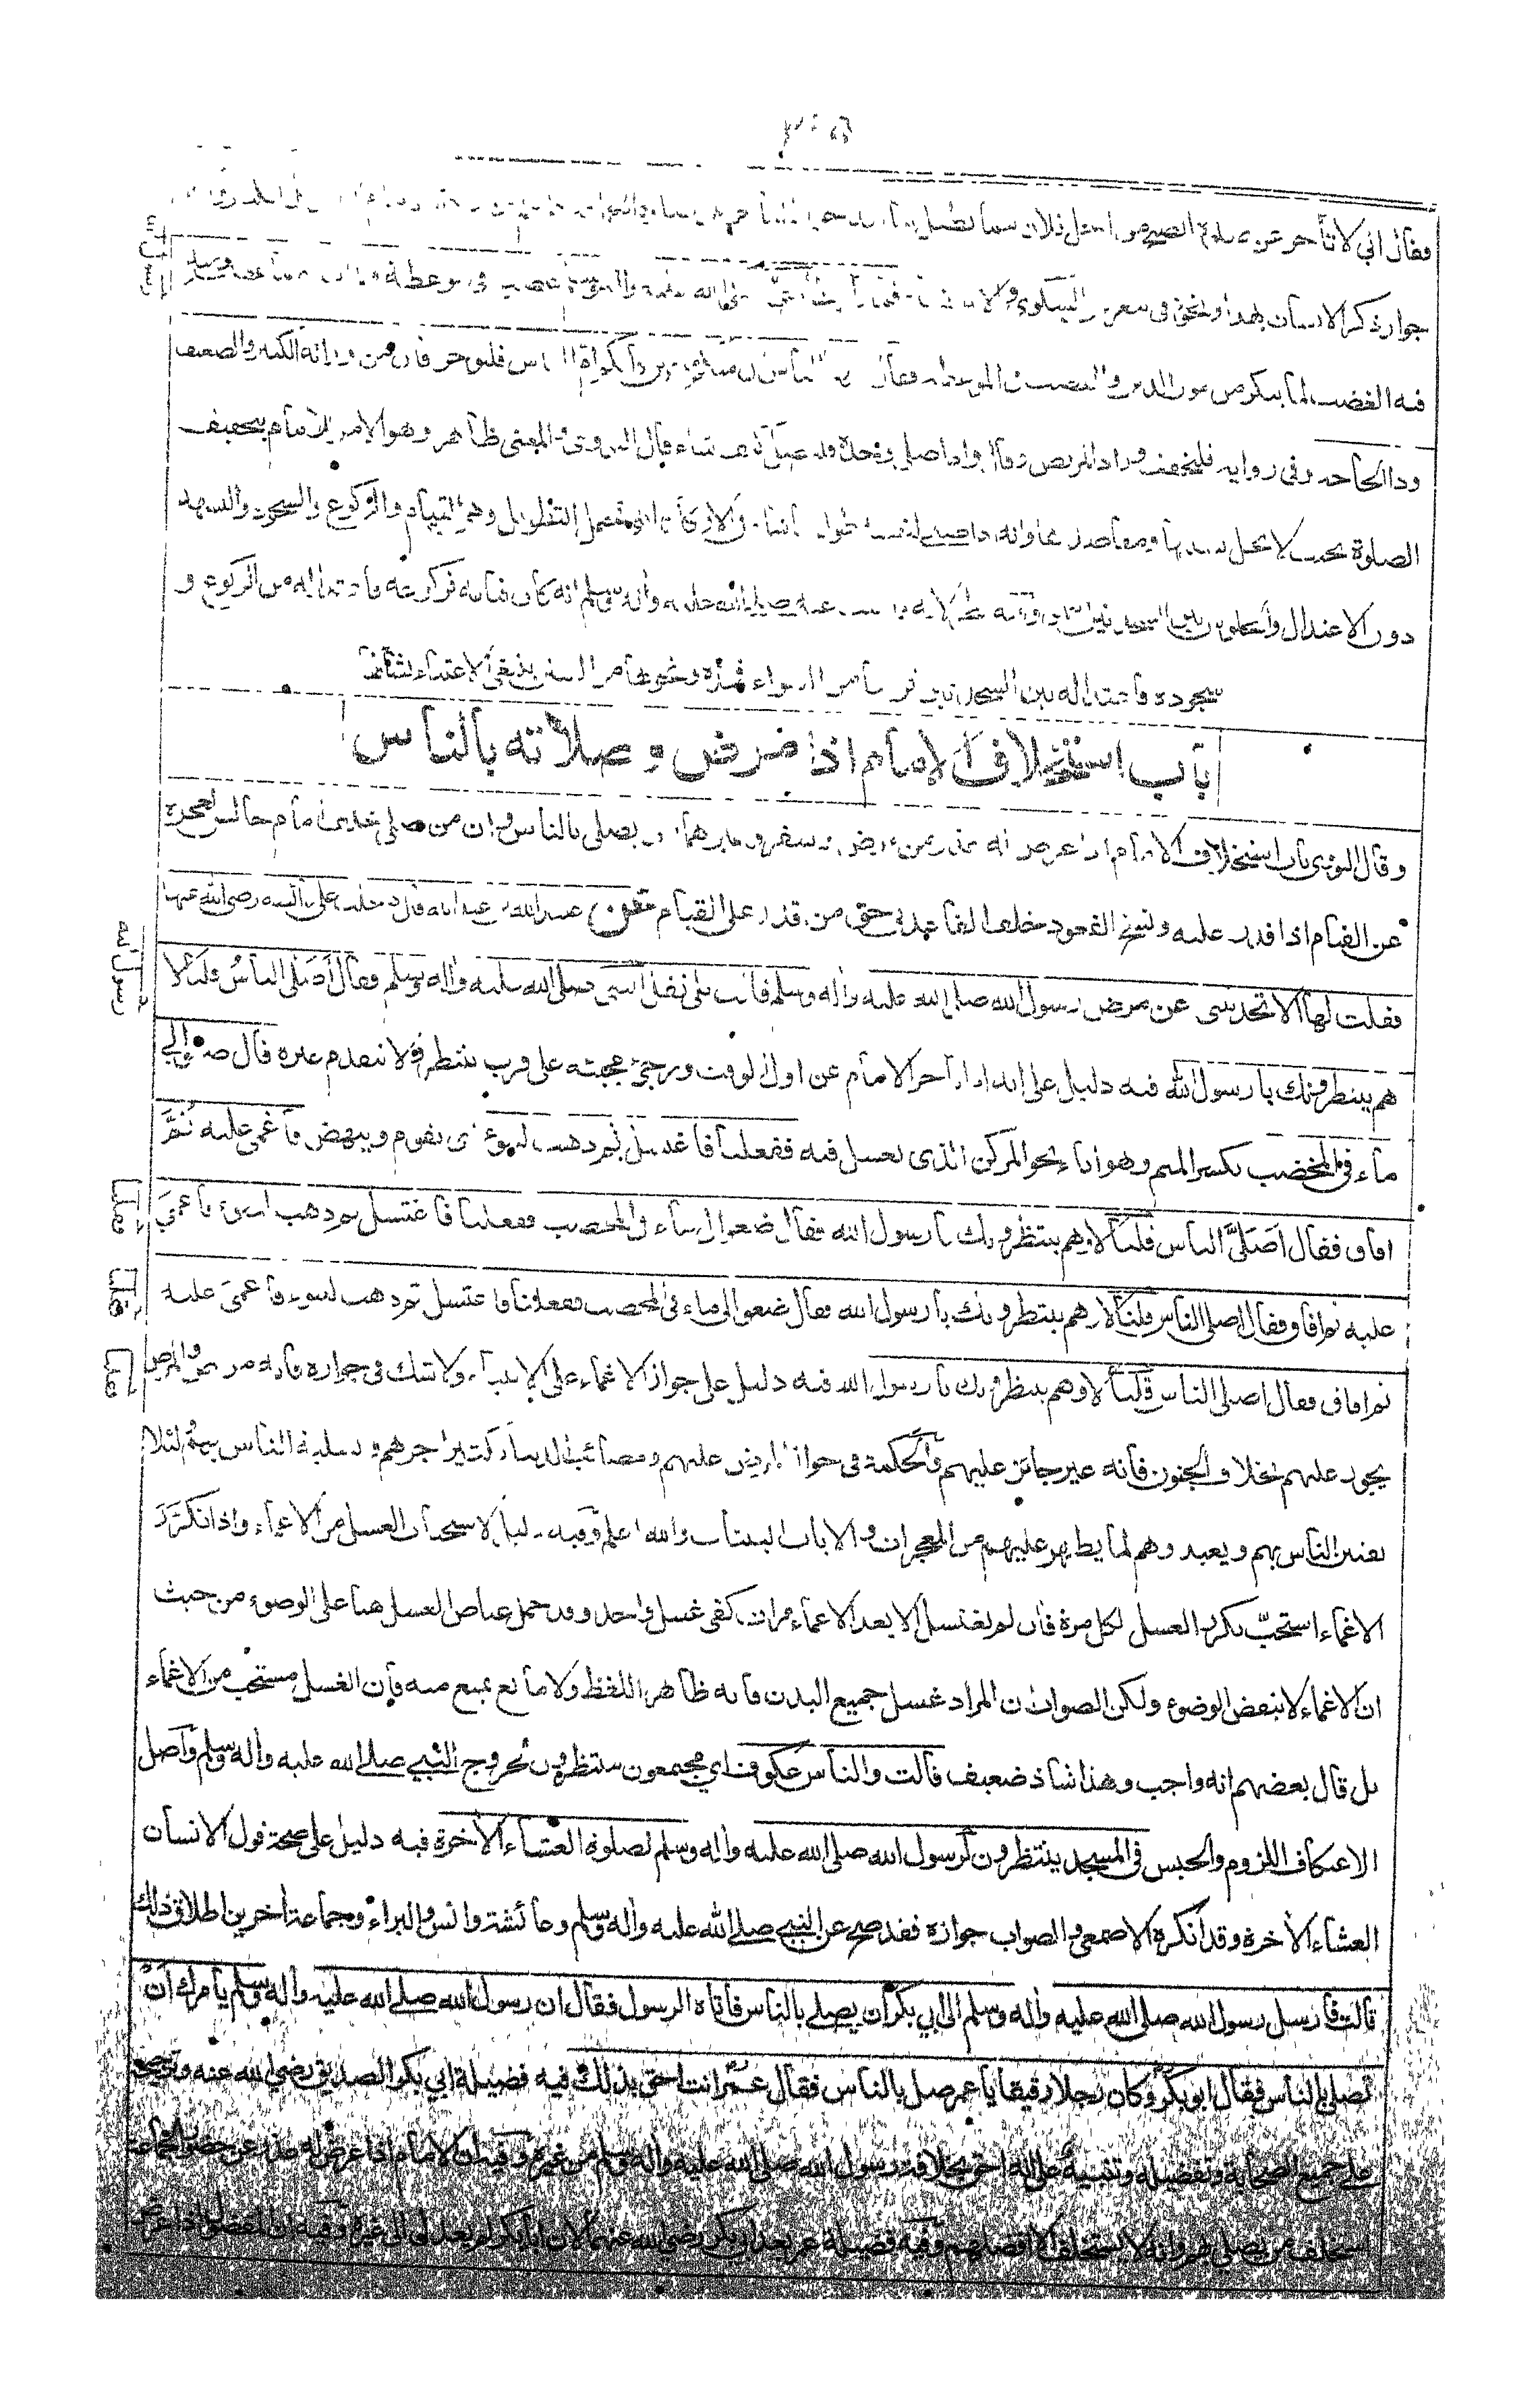 فقال اني لاتأخر عن صلوة الصبح من اجل فلان مما يطيل بنا
جواز ذكر الانسان بهذا ونحوه في معرض الشكوى
فيه الغضب لما ينكر من امور الدين والغضب في الموعظة فقال يا ايها الناس ان منكم منفرين فأيكم ام الناس فليوجز فان من ورائه الكبير والضعيف
وذا الحاجة وفي رواية فليخفف وزاد المريض وقال واذا صلى وحده فليصل كيف شاء قال النووي والمعنى ظاهر وهو الامر للامام بتخفيف
الصلوة بحيث لا يخل بسنتها ومقاصدها وانه اذا صلى لنفسه طول ما شاء في الاركان التي تحتمل التطويل وهي القيام والركوع والسجود والتشهد
دون الاعتدال والجلوس بين السجدتين صلى الله عليه واله وسلم انه كان قيامه فركوعه فاعتداله من الركوع و
سجوده فاعتداله بين السجدتين قريبا من السواء فهذه ونحوها من السنن ينبغي الاعتناء بشأنها
باب استخلاف الامام اذا مرض وصلاته بالناس
وقال النووي باب استخلاف الامام اذا عرض له عذر من مرض وسفر وغيرهما من يصلي بالناس وان من صلى خلف امام جالس لعجزه
عن القيام اذا قدر عليه ونسخ القعود خلف القاعد في حق من قدر على القيام عن عبيد الله بن عبد الله قال دخلت على عائشة رضي الله عنها
فقلت لها الا تحدثيني عن مرض رسول الله صلى الله عليه واله وسلم قالت بلى ثقل النبي صلى الله عليه واله وسلم فقال أصلى الناس قلنا لا
هم ينتظرونك يا رسول الله فيه دليل على انه اذا تأخر الامام عن اول الوقت ورجي مجيئه على قرب ينتظر ولا يتقدم غيره قال ضعوا لي
ماء في المخضب بكسر الميم وهو اناء نحو المركن الذي يغسل فيه ففعلنا فاغتسل ثم ذهب لينوء اي يقوم وينهض فاغمي عليه ثُمَّ
افاق فقال أصلى الناس قلنا لا وهم ينتظرونك يا رسول الله فقال ضعوا لي ماء في المخضب ففعلنا فاغتسل ثم ذهب لينوء فاغمي
عليه ثم افاق فقال اصلى الناس قلنا لا وهم ينتظرونك يا رسول الله فقال ضعوا لي ماء في المخضب ففعلنا فاغتسل ثم ذهب لينوء فاغمي عليه
ثم افاق فقال اصلى الناس قلنا لا وهم ينتظرونك يا رسول الله فيه دليل على جواز الاغماء على الانبياء ولا شك في جوازه فانه مرض والمرض
يجوز عليهم بخلاف الجنون فانه غير جائز عليهم والحكمة في جواز المرض عليهم ومصائب الدنيا تكثير اجرهم وتسلية الناس بهم ولئلا
يفتتن الناس بهم ويعبدوهم لما يظهر عليهم من المعجزات والايات البينات والله اعلم وفيه دليل لاستحباب الغسل من الاغماء واذا تكرر
الاغماء استحب تكرر الغسل لكل مرة فان لم يغتسل الا بعد الاغماء مرات كفى غسل واحد وقد حمل عياض الغسل هنا على الوضوء من حيث
ان الاغماء لا ينقض الوضوء ولكن الصواب ان المراد غسل جميع البدن فانه ظاهر اللفظ ولا مانع يمنع منه فان الغسل مستحب من الاغماء
بل قال بعضهم انه واجب وهذا شاذ ضعيف قالت والناس عكوف اي مجتمعون منتظرون لخروج النبي صلى الله عليه واله وسلم واصل
الاعتكاف اللزوم والحبس في المسجد ينتظرون رسول الله صلى الله عليه واله وسلم لصلوة العشاء الاخرة فيه دليل على صحة قول الانسان
العشاء الاخرة وقد انكره الاصمعي والصواب جوازه فقد صح عن النبي صلى الله عليه واله وسلم وعائشة وانس والبراء وجماعة اخرين اطلاق ذلك
قالت فارسل رسول الله صلى الله عليه واله وسلم الى ابي بكر ان يصلي بالناس فاتاه الرسول فقال ان رسول الله صلى الله عليه واله وسلم يأمرك ان
تصلي بالناس فقال ابو بكر وكان رجلا رقيقا يا عمر صل بالناس فقال عمر انت احق بذلك فيه فضيلة ابي بكر الصديق رضي الله عنه وترجيحه
على جميع الصحابة وتفضيله وتنبيه على انه احق بخلافة رسول الله صلى الله عليه واله وسلم من غيره وفيه ان الامام اذا عرض له عذر عن حضور الجماعة
استخلف من يصلي بهم وانه لا يستخلف الا افضلهم وفيه فضيلة عمر بعد ابي بكر رضي الله عنهما لان ابا بكر لم يعدل الى غيره وفيه ان المفضول اذا عرض